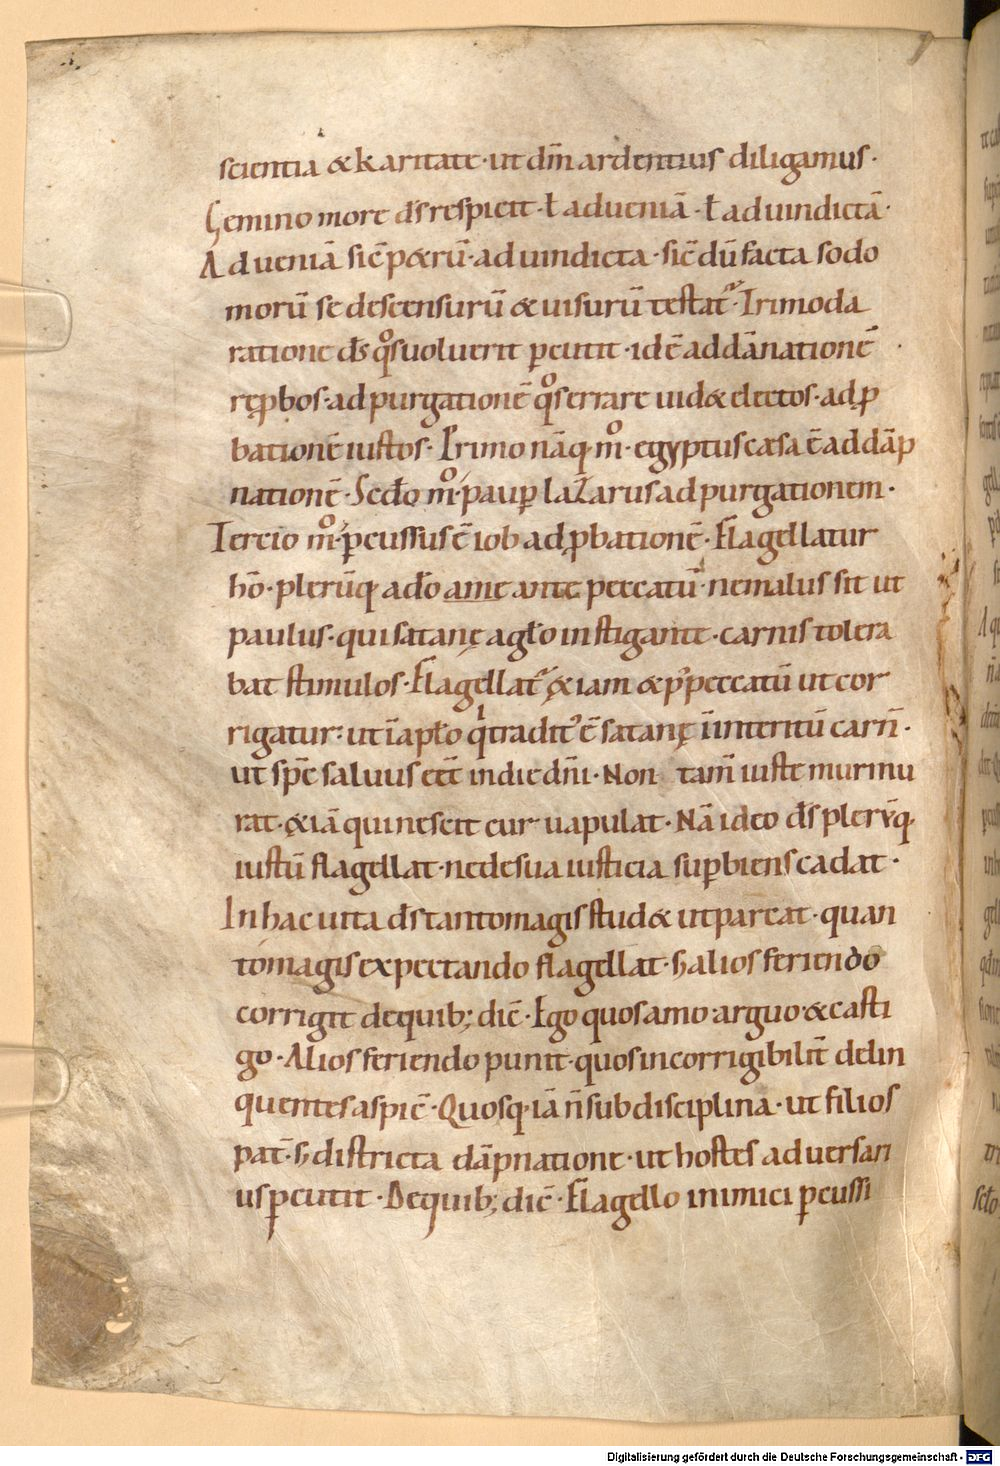 scientia & karitate · ut dm̄ ardentius diligamus ·
Gemino more ds̄ respicit · ł ad ueniā · ł ad uindictā ·
Ad ueniā sic̄ p&rū · ad uindicta · sic̄ dū facta sodo
morū se descensurū & uisurū testat᷑ · Trimoda
ratione ds̄ qͦs uoluerit ꝑcutit · id ē ad dānationē ·
reꝓbos · ad purgationē qͦs errare uid& electos · ad ꝓ
bationē iustos · Primo nāq; mͦ · egyptus cæsa ē ad dāp
nationē · Scdo mͦ · paup̄ laZarus ad purgationem ·
Tercio mͦ · ꝑcussus ē iob ad ꝓbationē · Flagellatur
hō · plerūq; a dō ante peccatū · ne malus sit ut
paulus · qui satanę aglo instigante · carnis tolera
bat stimulos · Flagellat᷑ &iam & p᷑ peccatū ut cor
rigatur : ut ī aplo qͥ traditꝰ ē satanę ī interitū carn̄ ·
ut sp̄c saluus eēt in die dn̄i · Non tam̄ iuste murmu
rat · &iā qui nescit cur uapulat · Nā ideo ds̄ plerūq;
iustū flagellat · ne de sua iusticia supbiens cadat ·
In hac uita ds̄ tanto magis stud& ut parcat · quan
to magis expectando flagellat · H alios feriendo
corrigit de quib; dic̄ · Ego quos amo arguo & casti
go · Alios feriendo punit · quos incorrigibilit̄ delin
quentes aspic̄ · Quosq; iā n̄ sub disciplina · ut filios
pat̄ · h districta dāpnatione · ut hostes aduersari
us ꝑcutit · De quib; dic̄ · Flagello inimici ꝑcussi
Digitalisierung gefördert durch die Deutsche Forschungsgemeinschaft - DFG